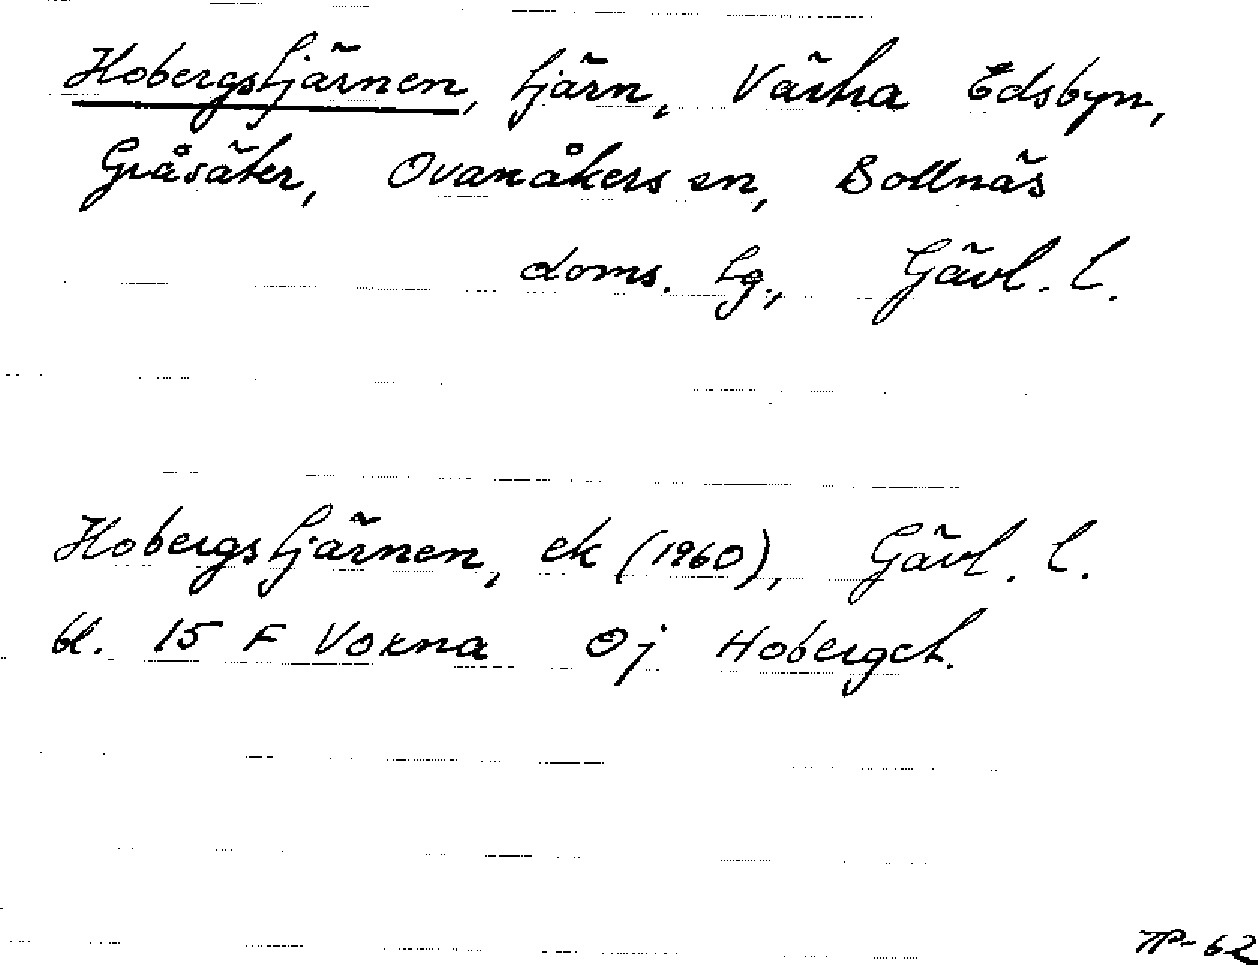 Hobergstjärnen, tjärn, Västra Edsbyn,
Gråsäter, Ovanåkers sn, Bollnäs
doms. tg., Gävl. l.
Hobergstjärnen, ek (1960), Gävl. l.
bl. 15 F Voxna Oj Hoberget.
TP-62